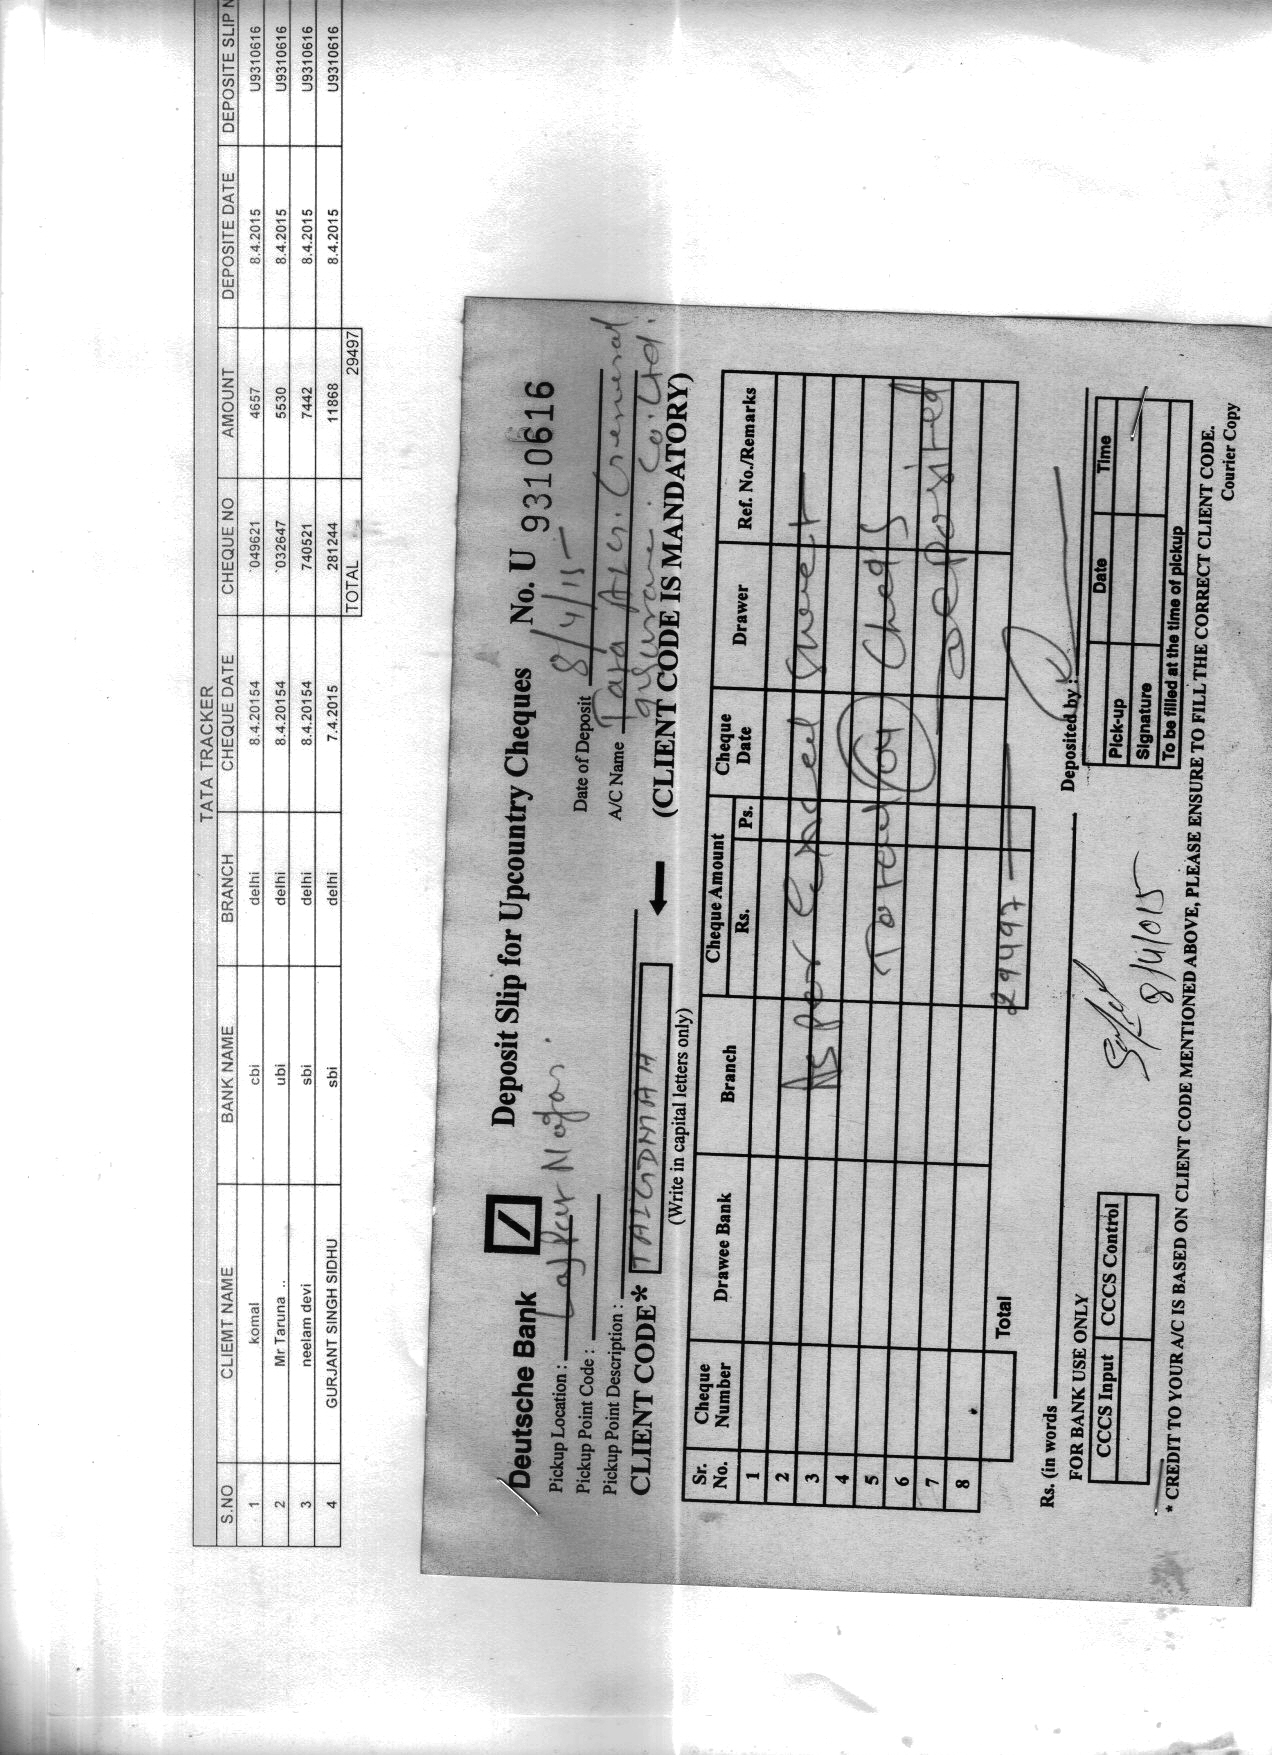 TATA TRACKER
S.NO CLIEMT NAME BANK NAME BRANCH CHEQUE DATE CHEQUE NO AMOUNT DEPOSITE DATE DEPOSITE SLIP N
1 komal cbi delhi 8.4.20154 `049621 4657 8.4.2015 U9310616
2 Mr Taruna .. ubi delhi 8.4.20154 `032647 5530 8.4.2015 U9310616
3 neelam devi sbi delhi 8.4.20154 740521 7442 8.4.2015 U9310616
4 GURJANT SINGH SIDHU sbi delhi 7.4.2015 281244 11868 8.4.2015 U9310616
TOTAL 29497
Deutsche Bank Deposit Slip for Upcountry Cheques No. U 9310616
Pickup Location : Lajpat Nagar. Date of Deposit 8/4/15
Pickup Point Code : A/C Name Tata AIG. General
Pickup Point Description : Co. Ltd.
CLIENT CODE* TAIGDMAH (CLIENT CODE IS MANDATORY)
(Write in capital letters only)
Sr. No. Cheque Number Drawee Bank Branch Cheque Amount Rs. Ps. Cheque Date Drawer Ref. No./Remarks
1
2
3 As Per Excel Sheet
4
5 Total (04) Ched's
6
7 deposited
8
Total 29497
Rs. (in words Deposited by :
FOR BANK USE ONLY
CCCS Input CCCS Control
8/4/015
Pick-up Date Time
Signature
To be filled at the time of pickup
* CREDIT TO YOUR A/C IS BASED ON CLIENT CODE MENTIONED ABOVE, PLEASE ENSURE TO FILL THE CORRECT CLIENT CODE.
Courier Copy